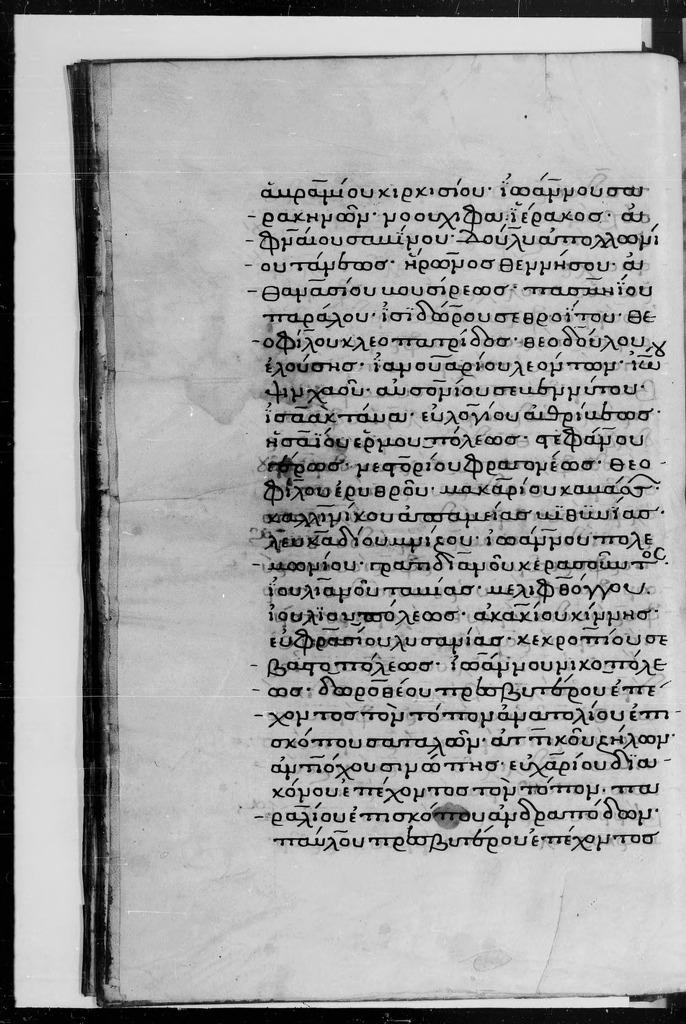 ἀμραμίου κιρκισίου· ἰωάννου σα
ρακηνῶν· μουχιφα· ἱέρακος· ἀ
φναίου· δουλυ ἀπολλωνί
ου τάνεως· ἥρωνος θεννήσου· ἀ
θανασίου βουσίρεως· πασμηΐου
παράλου· ἰσιδώρου σεθροΐτου· θε
οφίλου κλεοπατρίδος· θεοδούλου
ἑλούσης· ἰανουαρίου λεόντων· ἰω
ψιγχαοῦ· αὐσονίου σεβεννύτου·
ἰσαὰκ τάνα· εὐλογίου ἀθρίβεως·
ἡσαΐου ἑρμουπόλεως· στεφάνου
γέρως· νεστορίου φραγονέως· θεο
φίλου ἐρυθροῦ· μακαρίου καμαός·
καλλινίκου ἀπαμείας βιθυνίας·
λευκαδίου μνίζου· ἰωάννου πολε
μωνίου· γραπιδιανοῦ κερασοῦντος
ἰουλιανοῦ ταμίας· μελιφθόγγου
ἰουλϊουπόλεως· ἀκακίου κίννης·
εὐφρασίου λυσανίας· κεκροπίου σε
βαστοπόλεως· ἰωάννου νικοπόλε
ως· δωροθέου πρεσβυτέρου ἐπέ
χοντος τὸν τόπον ἀνατολίου ἐπι
σκόπου σαταλῶν· ἀττικοῦ ζήλων·
ἀντιόχου σινώπης· εὐχαρίου δϊα
κόνου ἐπέχοντος τὸν τόπον· πα
ραλίου ἐπισκόπου ἀνδραπόδων·
παύλου πρεσβυτέρου ἐπέχοντος